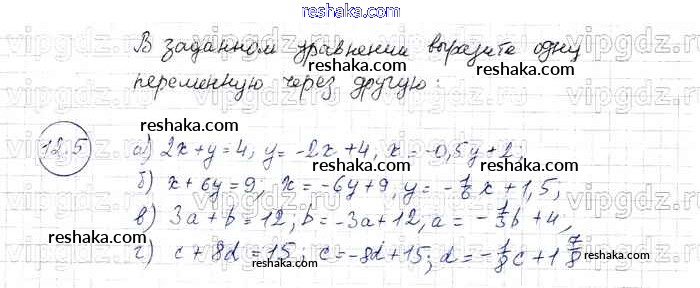 reshaka.com
В заданном уравнении выразите одну
reshaka.com
переменную через другую:
reshaka.com reshaka.com
12.5 а) 2x+y=4, y=-2x+4, x=-0,5y+2;
reshaka.com reshaka.com
б) x+6y=9; x=-6y+9, y=-1/6x+1,5;
reshaka.com reshaka.com
в) 3a+b=12; b=-3a+12, a=-1/3b+4,
reshaka.com reshaka.com
г) c+8d=15; c=-8d+15; d=-1/8c+1 7/8
reshaka.com